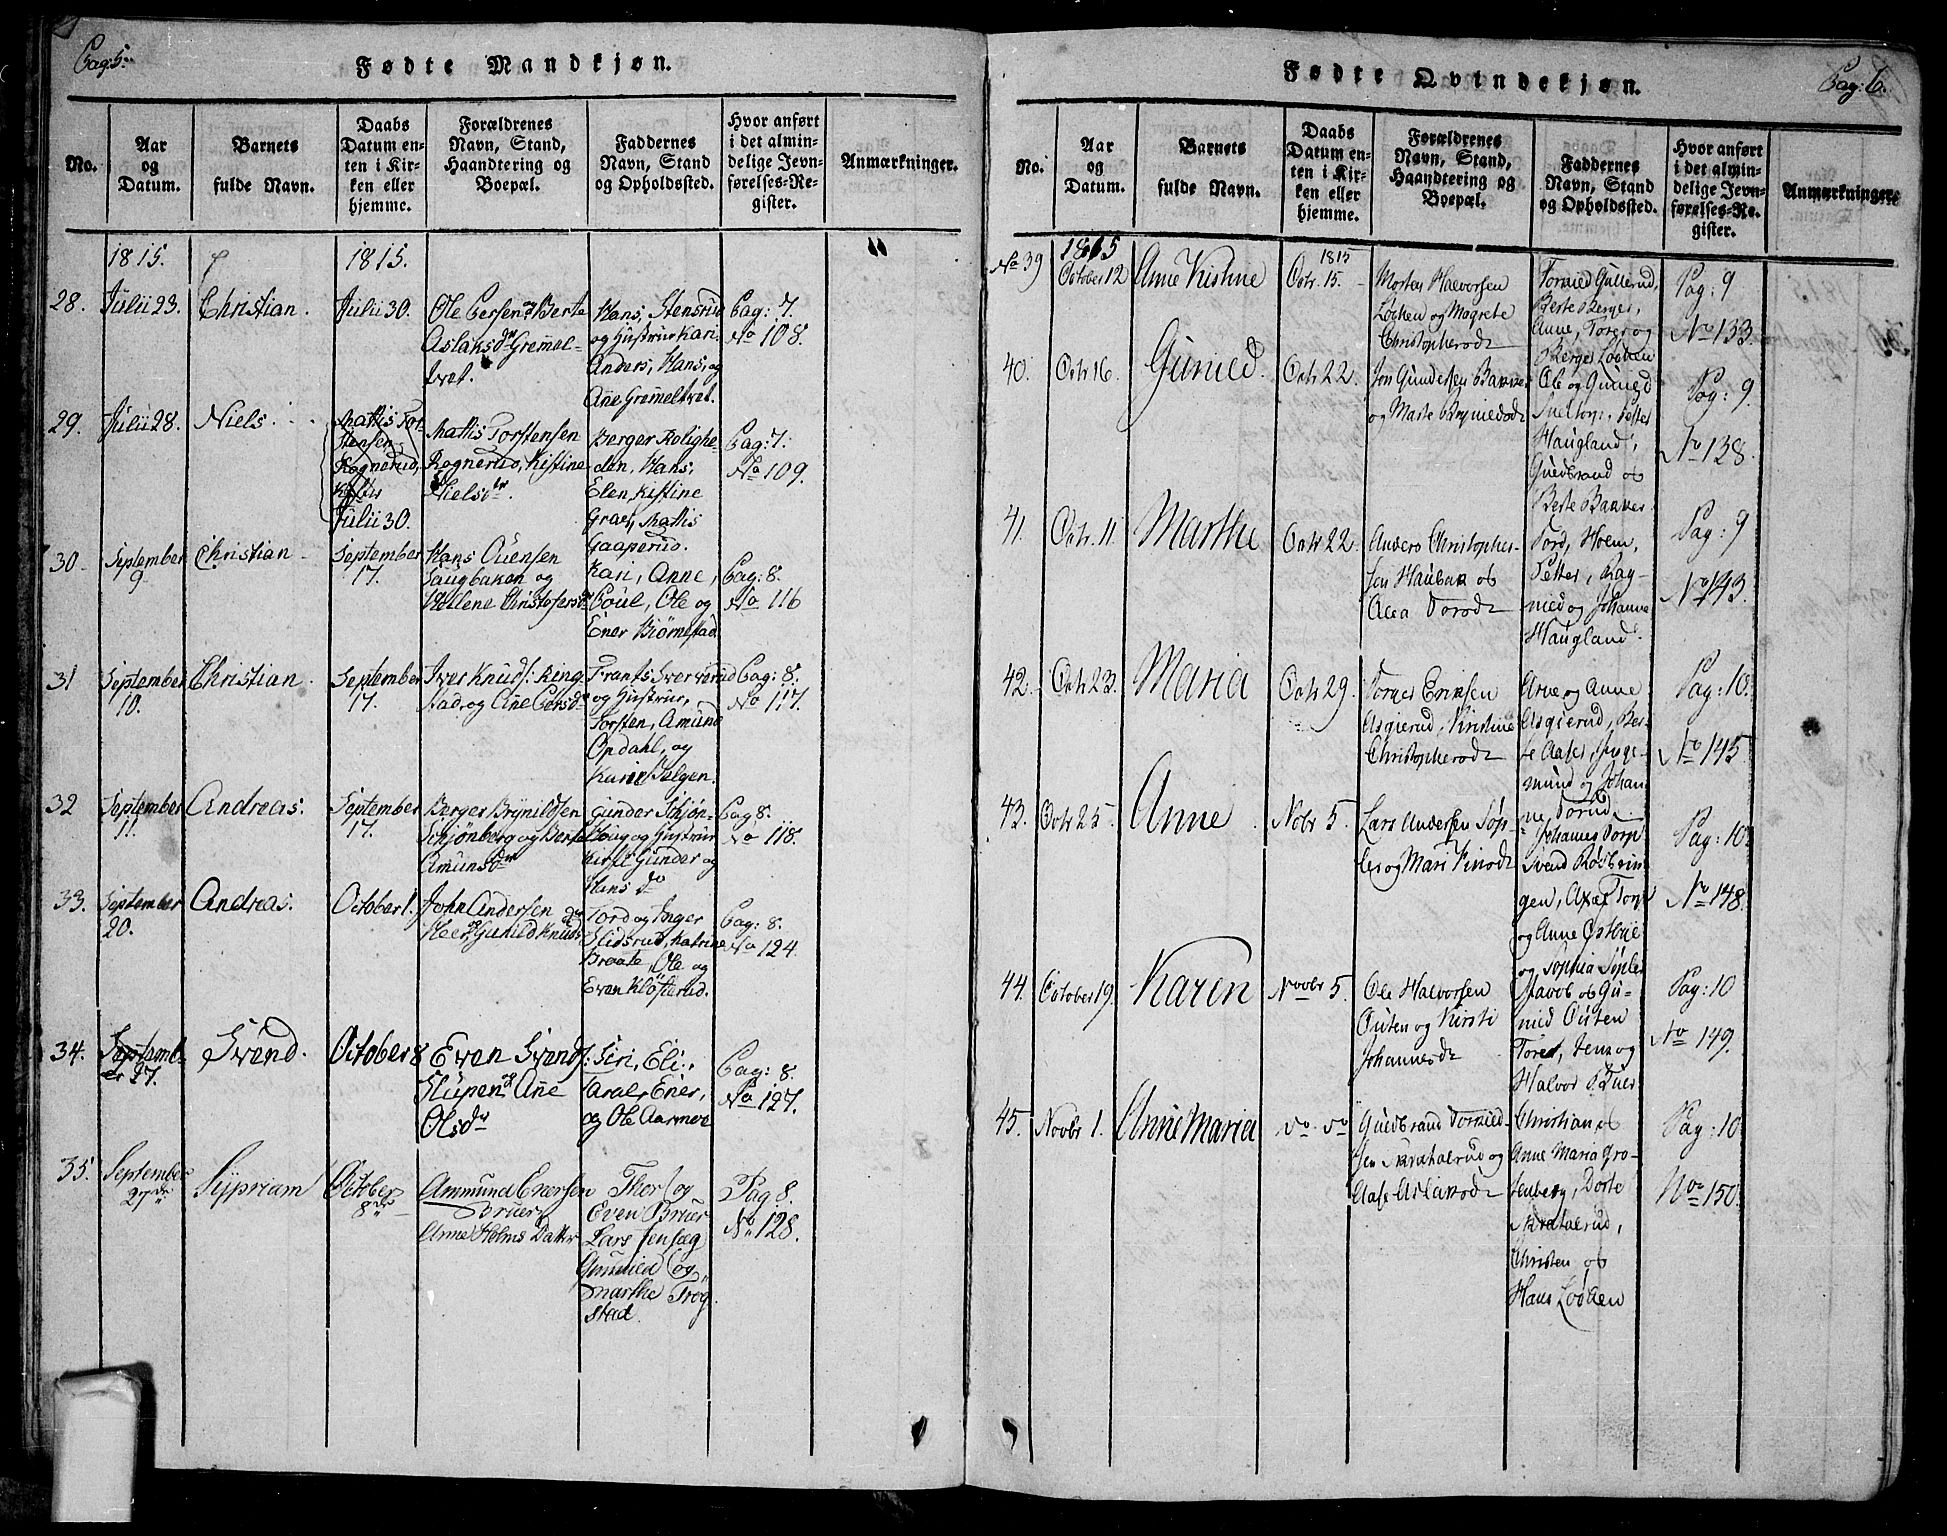 Pag: 5.
Fødte Mandkjøn.
No.
Aar
og
Datum.
Barnets
fulde Navn.
Daabs
Datum en-
ten i Kir-
ken eller
hjemme.
Forældrenes
Navn, Stand,
Haandtering og
Boepæl.
Faddernes
Navn, Stand
og Opholdssted.
Hvor anført
i det almin-
delige Jevn-
førelses-Re-
gister.
Anmærkninger.
1815.
1815.
28.
Julii 23.
Christian.
Julii 30.
Ole Persen og Berte
Aslaksdr Gremel-
tvet.
Hans, Stensrud
og Hustrue Kari
Anders, Hans, og
Ane Grømeltvet.
Pag: 7.
No 108.
29.
Julii 28.
Niels.
Mattis Tor-
stensen
Rognerud,
Julii 30.
Mattis Torstensen
Rognerud, Kistine
Nielsdr.
Berger Rolighe-
den, Hans,
Elen Kistine
Graer, Mattis
Gaaperud.
Pag: 7.
No 109.
30
September
9.
Christian
September
17.
Hans Ouensen
Haugbaken og
Hellene Christofersdr
Kari, Anne,
Poul, Ole og
Ener Biørnestad.
Pag: 8.
No 116
31
September
10.
Christian.
September
17.
Iver Knuds: Ring-
stad og Ane Persdr
Frants
og Hustrue,
Torsten, Amund
Opdahl, og
Karie Dalgen.
Pag: 8.
No 117.
32
September
11.
Andreas.
September
17.
Berger Brynildsen
Schjønberg og Berte
Amunsdr
Gunder Schjøn-
houg og Hustrue
Kirsti Gunder og
Hans do
Pag 8.
No 118.
33.
September
20.
Andreas.
October 1.
John Andersen
Heer og Gunild Knudsdr
Tord og Inger
Slidsrud, Katrine
Braate, Ole og
Even Kløfterud.
Pag: 8.
No 124.
34.
Septemb-
er 27.
Svend.
October 8
Even Svends:
Slupen og Ane
Olsdr
Siri, Eli,
Taral, Ener,
og Ole Aarmoe
Pag: 8.
No 127.
35.
September
27de
Sypriam
October
8de
Ammund Enersen
Bruer
Anne Helms Datter
Thor og
Even Bruer
Lars Jensæg
Gunnild og
Marthe Trøg
stad.
Pag 8.
No 128.
Pag: 6.
Fødte Qvindekjøn.
No.
Aar
og
Datum.
Barnets
fulde Navn.
Daabs
Datum en-
ten i Kir-
ken eller
hjemme.
Forældrenes
Navn, Stand,
Haandtering og
Boepæl.
Faddernes
Navn, Stand
og Opholdssted.
Hvor anført
i det almin-
delige Jevn-
førelses-Re-
gister.
Anmærkninger.
No 39
1815
October 12
Anne Kistine
1815
Octr. 15.
Morten Halvorsen
Løchen og Magrete
Christophersdr
Tormod Gullerud,
Berte Berger,
Anne, Torer og
Berger Løchen
Pag: 9
No 133.
40.
Octr 16.
Gunild.
Octr 22.
Jon Gundersen Bakker
og Marte Brynildsdr
Ole og Gunild
Sneltorp, Petter
Haugland,
Gudbrand og
Berte Bakker
Pag: 9.
No 138.
41.
Octr. 11.
Marthe
Octr 22.
Anders Christopher-
sen Haubak og
Alea Torsdr
Tord, Hoem,
Petter, Rag-
nild og Johanne
Haugland.
Pag: 9
No 143.
42.
Octr 23.
Maria
Octr 29.
Torger Eriksen
Asgierud, Kirstine
Christophersdr
Arne og Anne
Asgierud, Ber-
te Aase, Inge-
mund og Johan-
ne Torud
Pag: 10.
No 145
43.
Octr 25.
Anne
Nobr 5.
Lars Andersen Søp-
ler og Mari Finsdr
Johannes Torp
Svend Røsbrin-
gen, Axel Torp
og Anne Østbye
og Sophia Søpler
Pag: 10
No 148.
44.
October 19.
Karen
Novbr 5.
Ole Halvorsen
Outen og Kirsti
Johannesdr
Jacob og Gu-
nild Outen
Torer, Jens og
Halvor Bruer
Pag: 10
No 149.
45.
Novbr 1.
Anne Maria
do do
Gudbrand Tormod-
sen Skrataasrud og
Aase Aslaksdr
Christian og
Anne Maria Gro-
senberg, Dorte
Skrataasrud,
Christen og
Hans Løchen
Pag: 10
No 150.